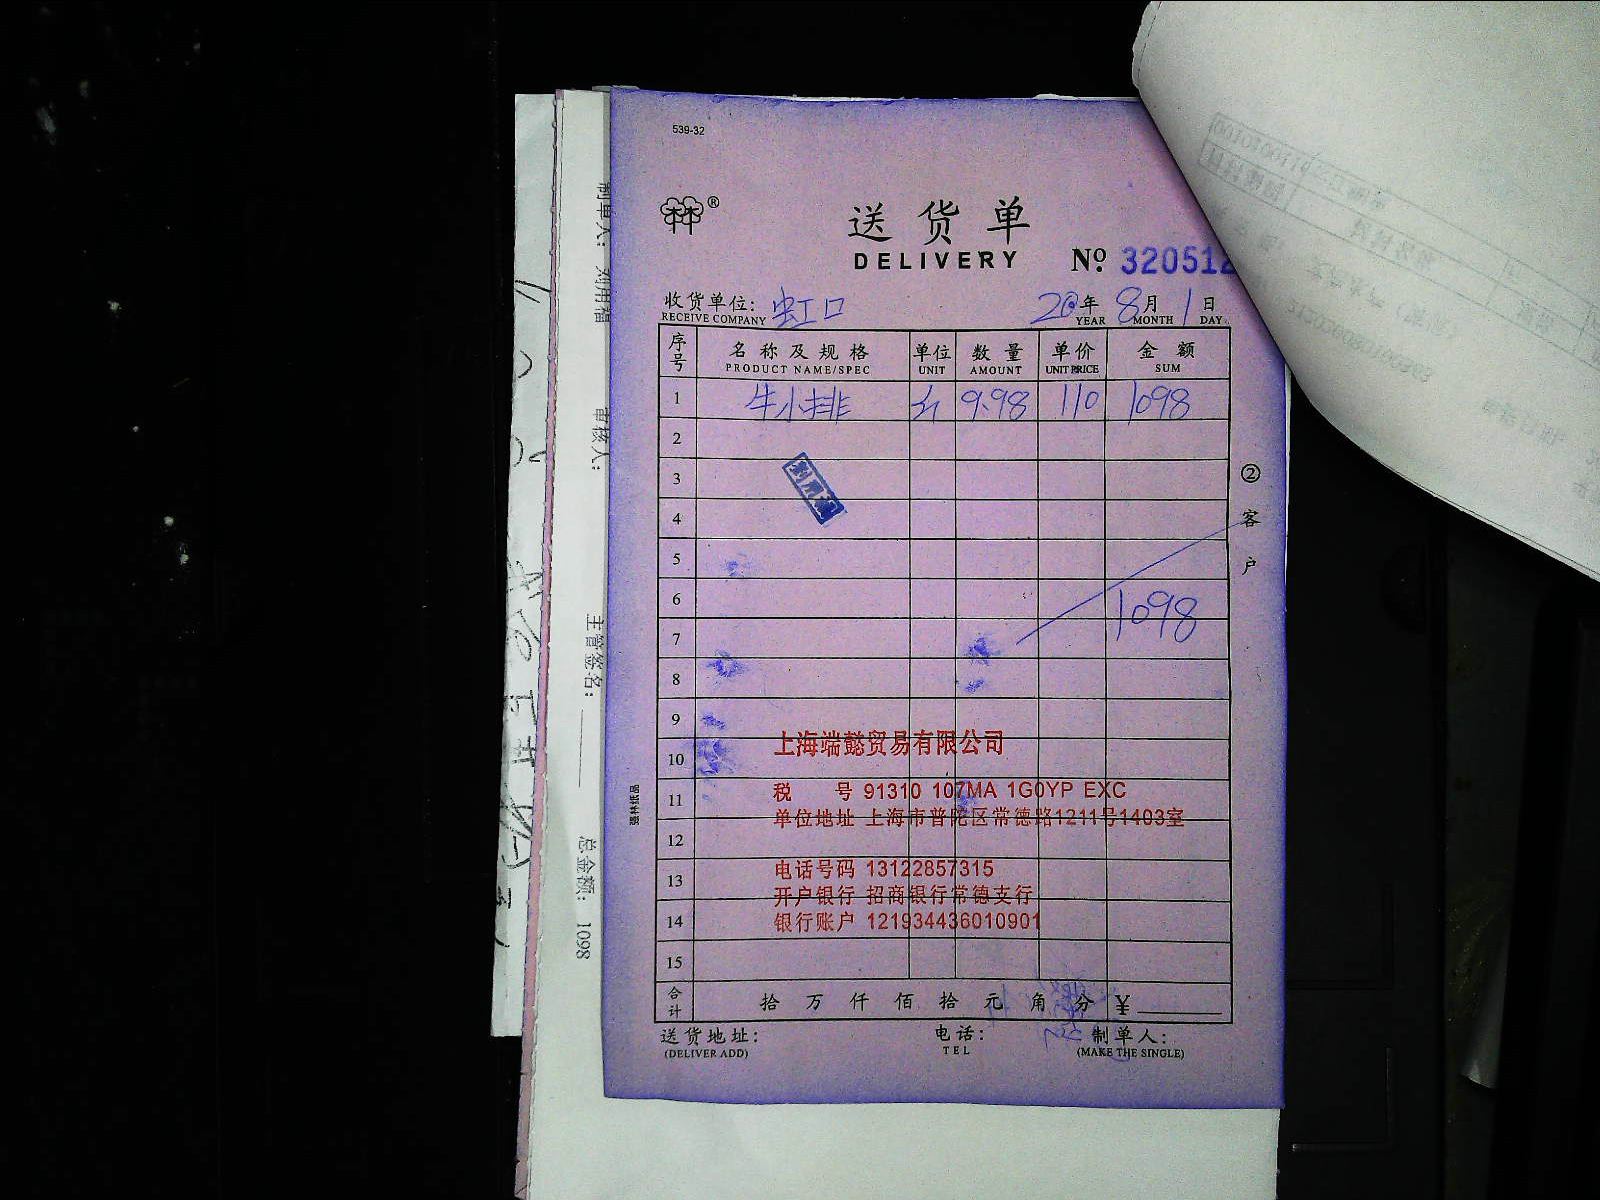 539-32
林®
送货单
DELIVERY
№ 320512
收货单位: 虹口 20 年 8 月 1 日
RECEIVE COMPANY YEAR MONTH DAY
序号 名称及规格 单位 数量 单价 金额
PRODUCT NAME/SPEC UNIT AMOUNT UNIT PRICE SUM
1 牛小排 9.98 110 1098
2
3
4
5
6
1098
7
8
9
10
上海端懿贸易有限公司
11 税 号 91310 107MA 1G0YP EXC
单位地址 上海市普陀区常德路1211号1403室
12
13 电话号码 13122857315
开户银行 招商银行常德支行
14 银行账户 121934436010901
15
合计 拾万仟佰拾元角分 ¥
送货地址: 电话: 制单人:
(DELIVER ADD) TEL (MAKE THE SINGLE)
②客户
强林纸品
制单人: 刘用福
审核人:
主管签名:
总金额: 1098